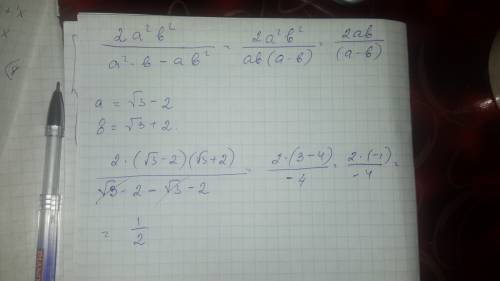 2a²b² / (a²·b - ab²) = 2a²b² / ab(a-b) = 2ab / (a-b)
a = √3 - 2
b = √3 + 2.
2·(√3-2)(√3+2) / (√3 - 2 - √3 - 2) = 2·(3-4) / -4 = 2·(-1) / -4 =
= 1/2